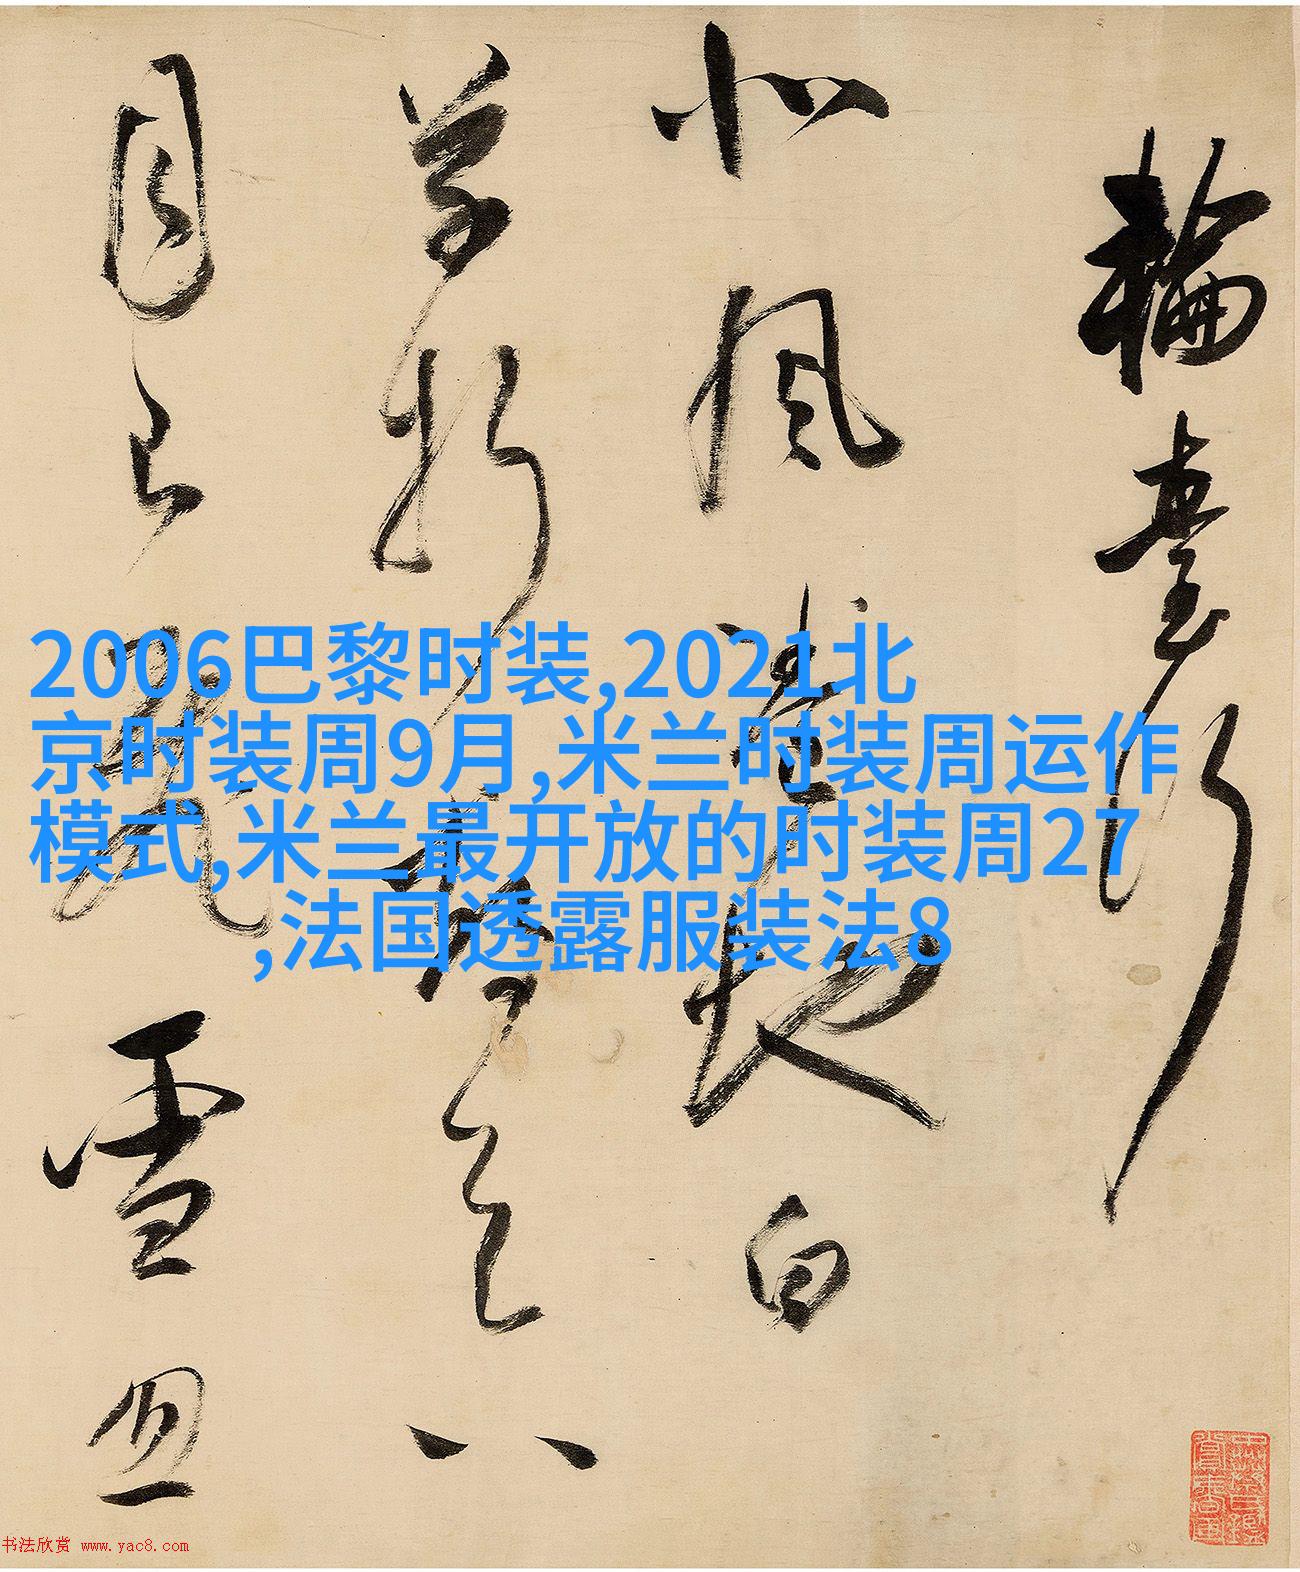 輪臺行
北風地白
草折胡天八
月即飛雪
2006巴黎时装,2021北
京时装周9月,米兰时装周运作
模式,米兰最开放的时装周27
,法国透露服装法8
书法欣赏 www.yac8.com